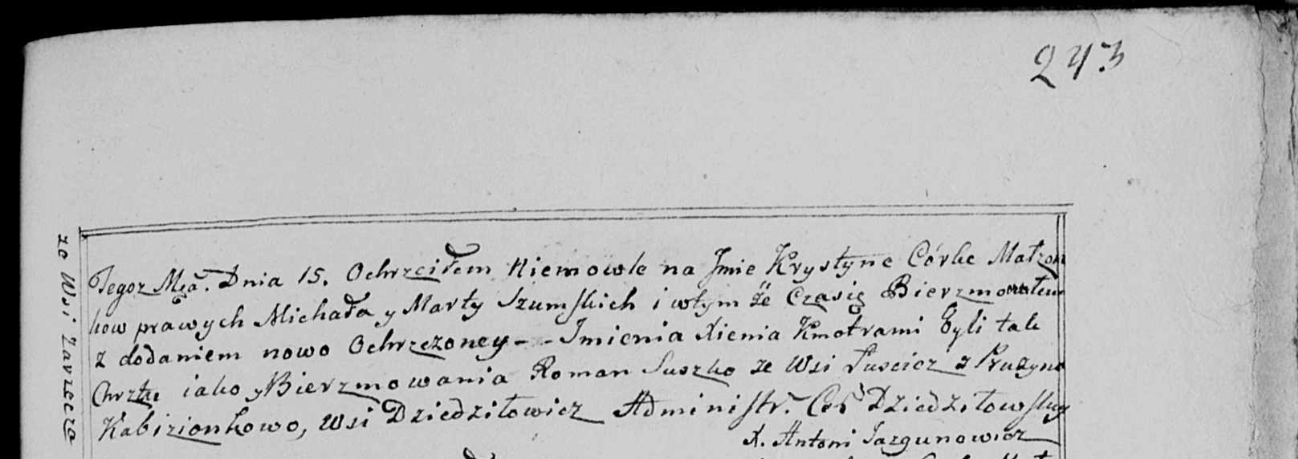 243
zo Wsi Zarzecza
Tegoż Mca. Dnia 15. Ochrzciłem Niemowle na Jmie Krystyne Córke Małżon
kow prawych Michała y Marty Szumskich i wtym że Czasię Bierzmowałem
z dodaniem nowo Ochrzczoney - - Imienia Xienia Kmotrami Byli tak
Chrztu iako y Bierzmowania Roman Suszko ze Wsi z
Kabizionkowo, Wsi Dziedziłowicz Administr. Dziedziłowskey
X. Antoni Jazgunowicz